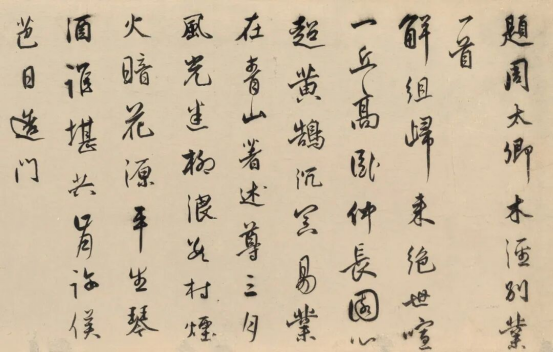 題周太卿木涇別業
一首
解組歸來絕世喧
一丘高臥仲長園心
超黃鵠沉冥易業
在青山著述尊三月
風光迷柳浪村煙
火暗花源平生琴
酒誰堪共肯許侯
芭日造門